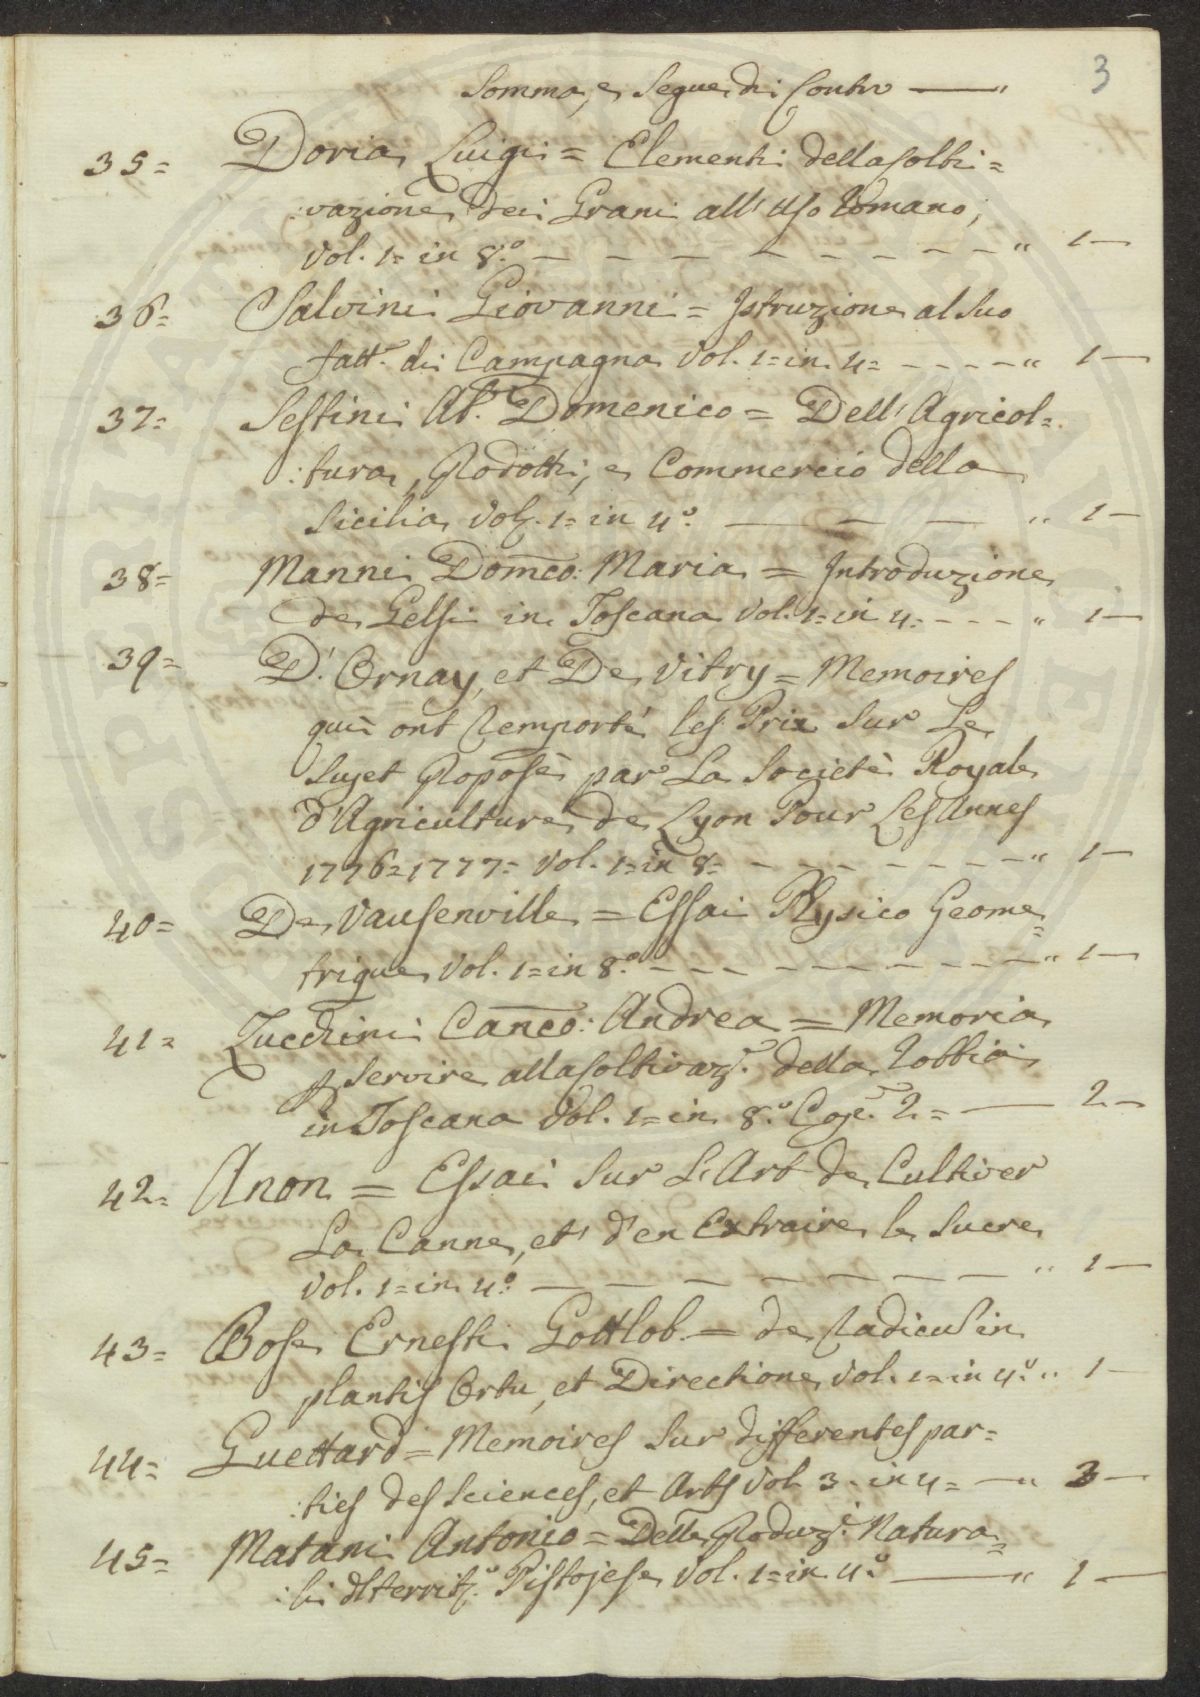 3
Somma, e Segue di Contro — "
35= Doria Luigi = Elementi della Colti=
vazione dei Grani all'Uso Romano,
Vol. 1= in 8.° — — — — — — — — — " 1 —
36= Salvini Giovanni = Istruzione al Suo
fatt.e di Campagna Vol. 1= in 4= - - - - " 1 —
37= Sestini Ab.e Domenico = Dell'Agricol=
:tura, Prodotti, e Commercio della
Sicilia, Vol. 1= in 4.° — — — " 1 —
38= Manni Dom̃co: Maria = Introduzione
de Gelsi in Toscana Vol. 1= in 4.= - - - " 1 —
39= D'Ornay, et De Vitry = Memoires
qui ont Remporté les Prix Sur Le
Sujet Proposè par La Societè Royale
d'Agriculture de Lyon Pour Les Annes
1776=1777= Vol. 1= in 8= - - - - - - - " 1 —
40= De Vausenville = Essai Physico Geome=
trique Vol. 1= in 8.° - - - - - - - - - " 1 —
41= Zucchini Can̄co: Andrea = Memoria
p Servire alla Coltivaz.e della Robbia
in Toscana Vol. 1= in 8.° Cop.e 2= — 2 —
42= Anon = Essai Sur L'Art de Cultiver
La Canne, et d'en Extraire le Sucre
Vol. 1= in 4.° — — — — — — — " 1 —
43= Bose Ernesti Gottlob = de Radicus in
plantis Ortu, et Directione Vol. 1= in 4.° " 1 —
44= Guettard = Memoires Sur differentes par=
:ties des Sciences, et Arts Vol. 3. in 4= — " 3 —
45= Matani Antonio = Delle Produz.i Natura=
:li del territ.° Pistojese Vol. 1= in 4.° — " 1 —